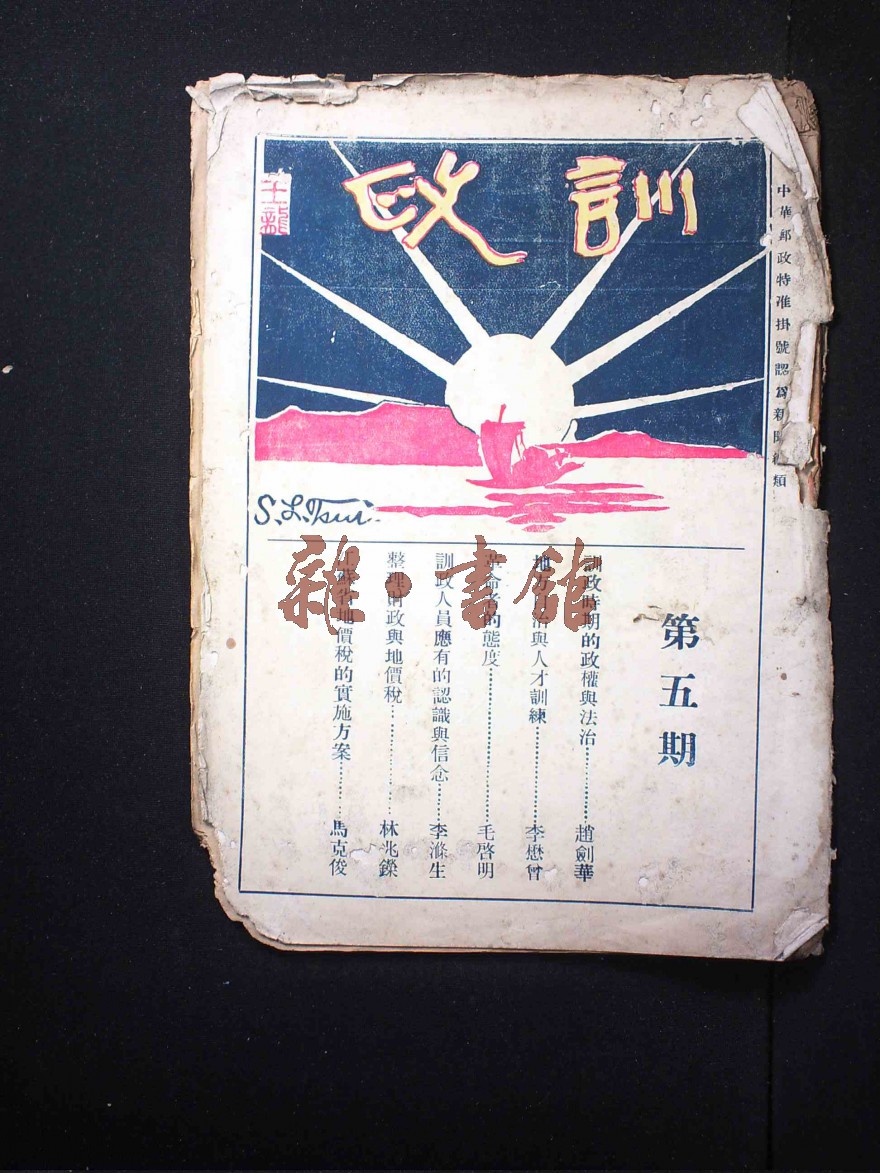 訓政
中華郵政特准掛號認爲新聞紙類
王龍
S.L.Tsui.
第五期
訓政時期的政權與法治…………趙劍華
地方自治與人才訓練…………李懋曾
革命者的態度…………毛啓明
訓政人員應有的認識與信念……李滌生
整理財政與地價稅…………林兆鑅
江蘇省地價稅的實施方案………馬克俊
雜·書館